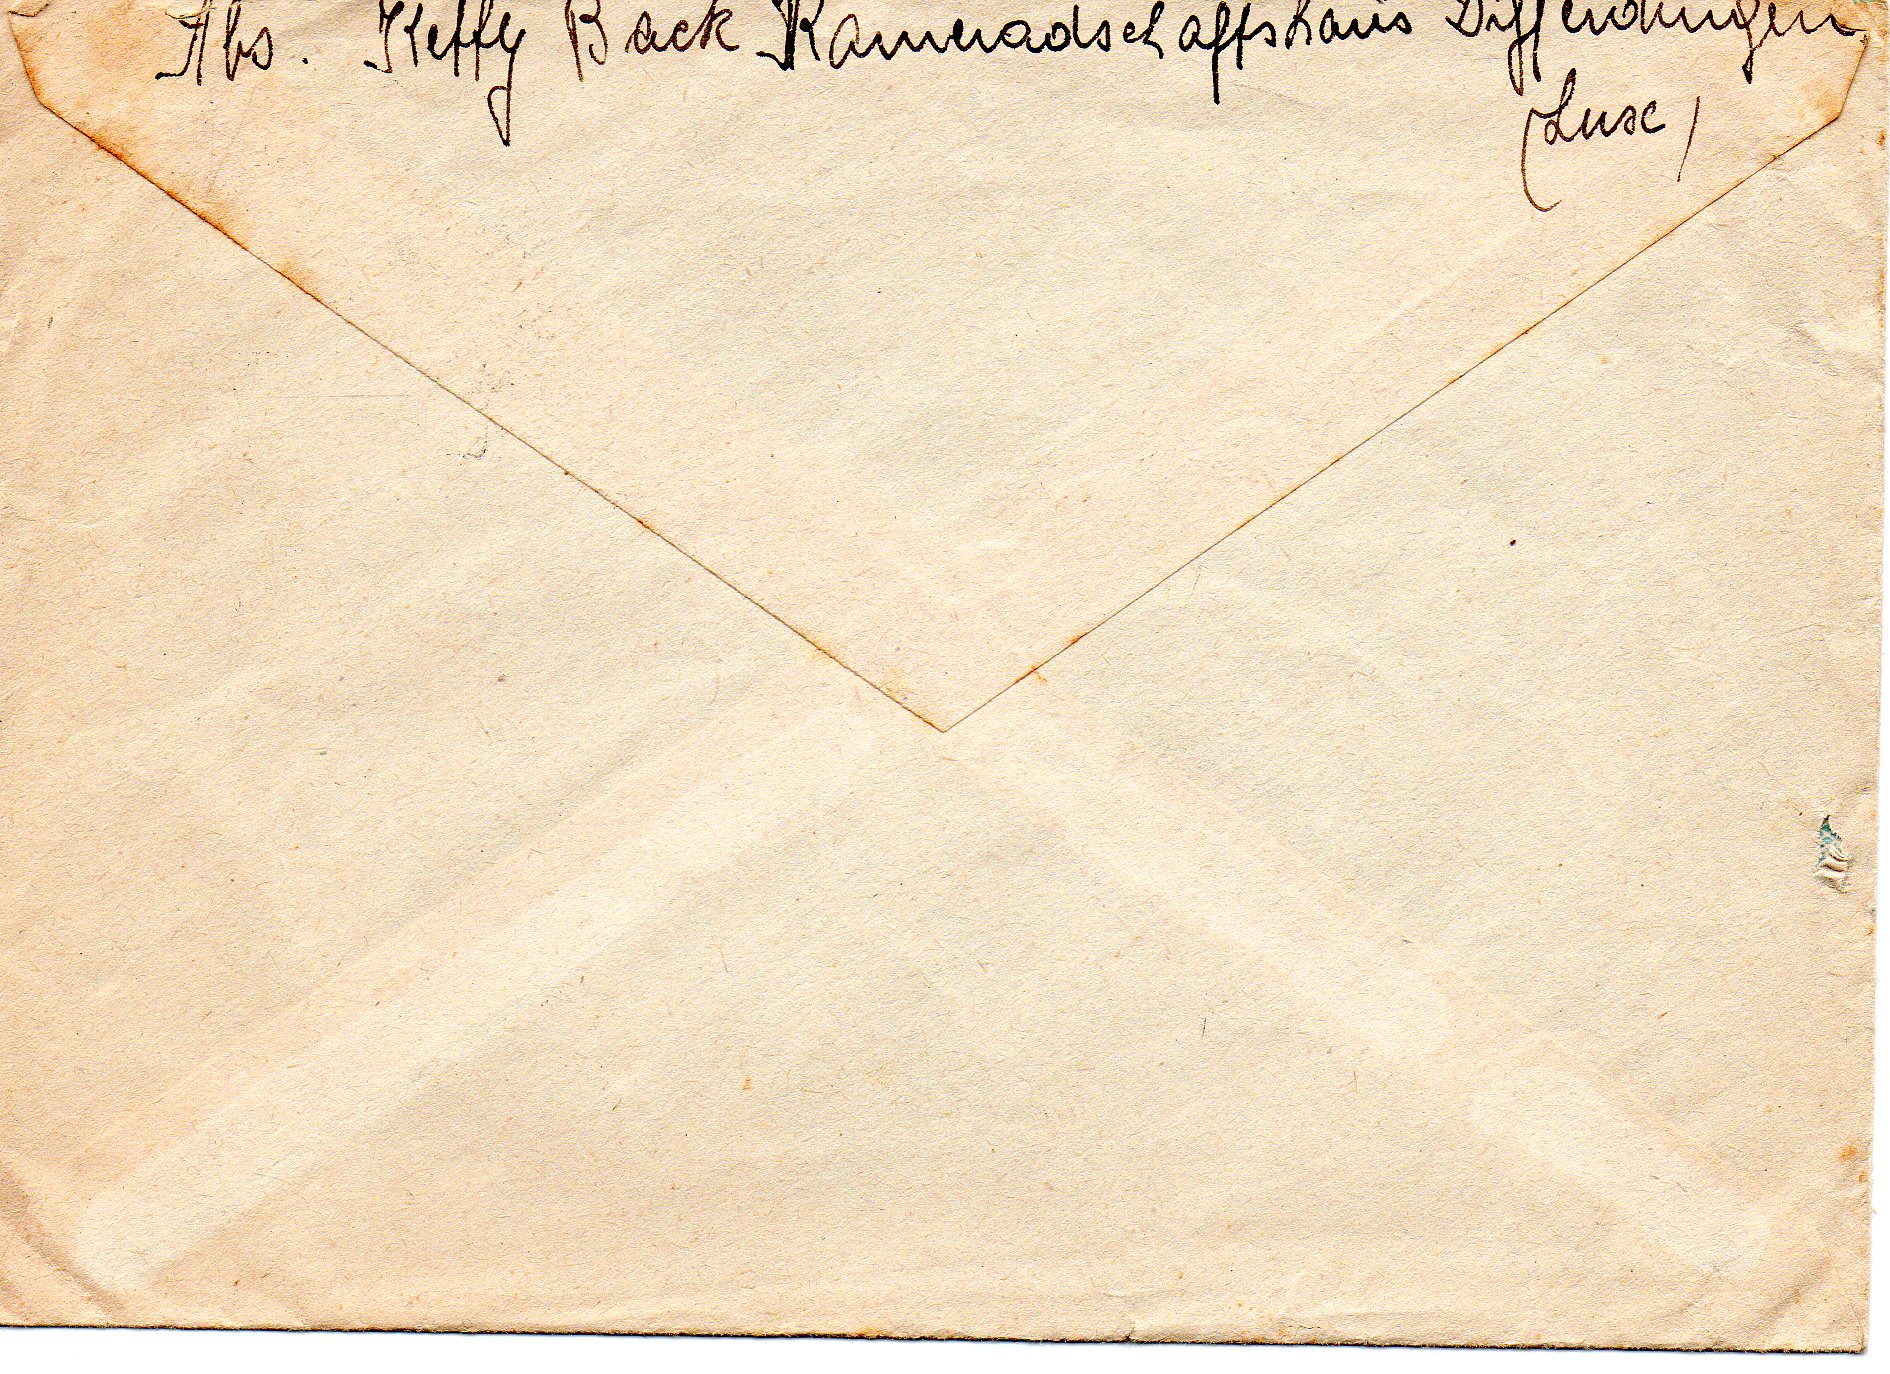 Abs. Ketty Back Kameradschaftshaus Differdingen
(Lux)